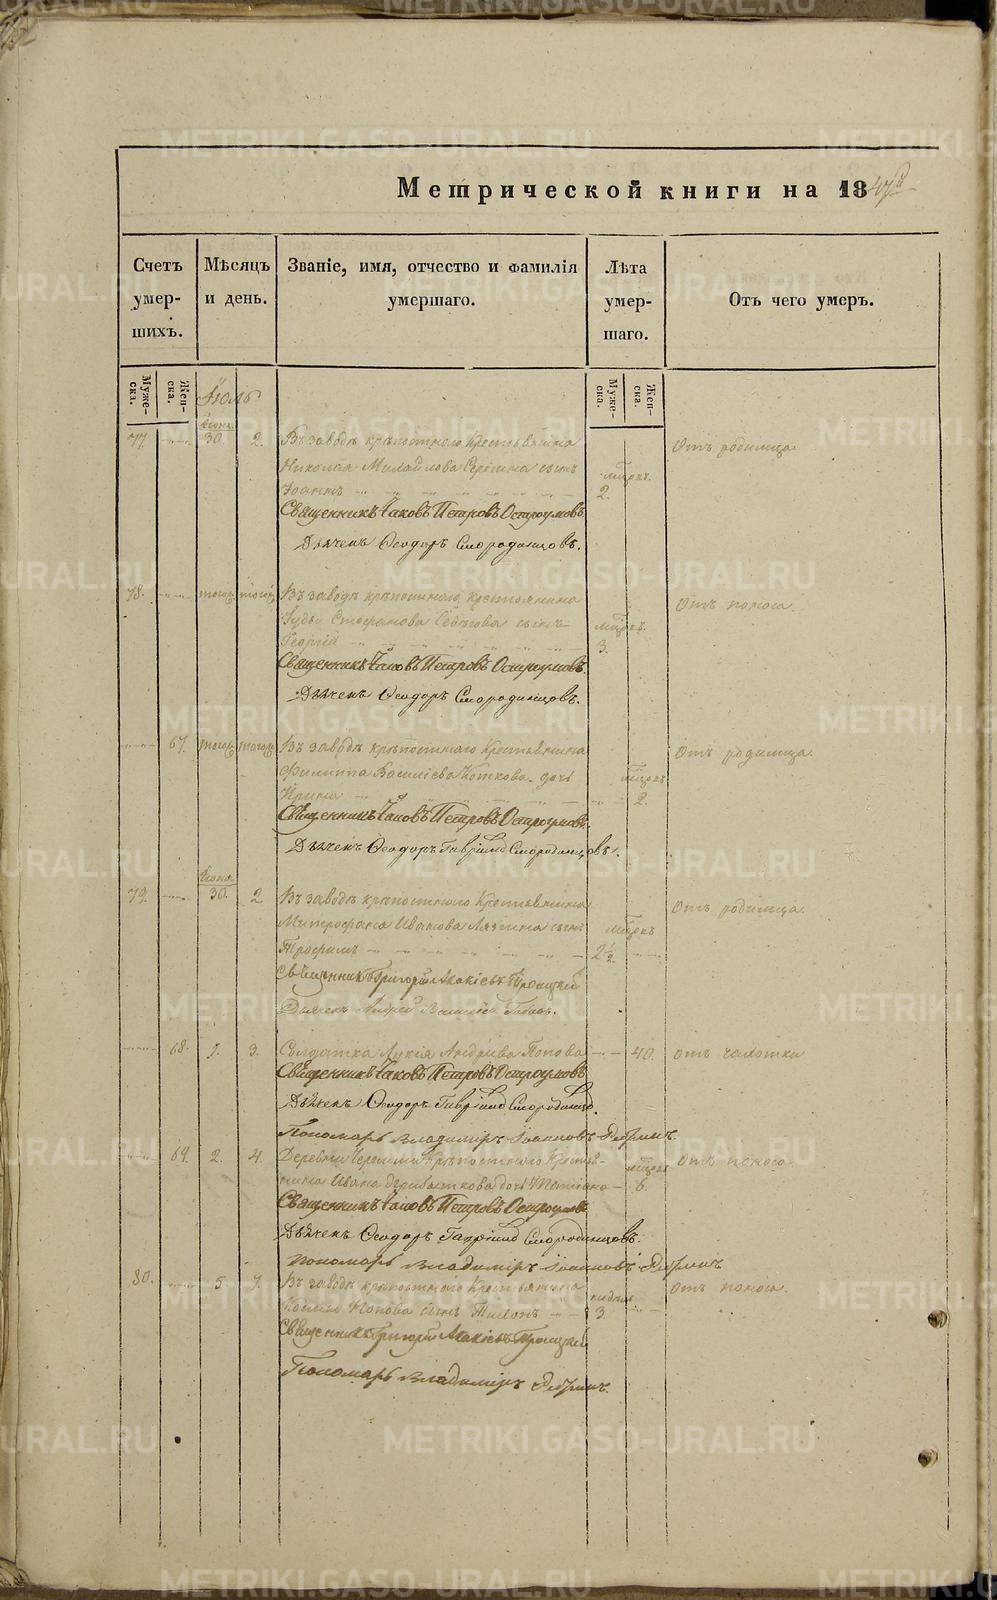 Метрической книги на 1847й
Счетъ умершихъ.
Мѣсяцъ и день.
Званіе, имя, отчество и фамилія умершаго.
Лѣта умершаго.
Отъ чего умеръ.
Мужеска.
Женска.
Мужеска.
Женска.
Іюль
Іюня
77 30. 2. Въ заводѣ крѣпостнаго крестьянина
Николая Михайлова сынъ
Іоаннъ
мѣсяц.
2.
Отъ родимца
Священникъ Іаковъ Петровъ Остроумовъ
Дьячекъ Ѳеодоръ Смородинцовъ.
78. тогож тогож Въ заводѣ крѣпостнаго крестьянина
Іуды Стефанова сынъ
Георгій
3.
Отъ поноса.
Священникъ Іаковъ Петровъ Остроумовъ
Дьячекъ Ѳеодоръ Смородинцовъ.
67. тогож тогож Въ заводѣ крѣпостнаго крестьянина
Филиппа Василіева Коткова дочь
Ирина
2.
Отъ родимца.
Священникъ Іаковъ Петровъ Остроумовъ.
Дьячекъ Ѳеодоръ Гавріиловъ Смородинцовъ.
Іюня
79. 30. 2 Въ заводѣ крѣпостнаго крестьянина
Митрофана Иванова сынъ
Трофимъ
2½
Отъ родимца.
Священникъ Григорій Акакіевъ Троицкій
Дьячекъ Андрей
68. 1. 3. Солдатка Лукія Андріева Попова 40. отъ чахотки
Священникъ Іаковъ Петровъ Остроумовъ
Дьячекъ Ѳеодоръ Гавріиловъ Смородинцо.
Пономарь Владиміръ Іоанновъ
69. 2. 4. Деревни крѣпостнаго крестья-
нина Ивана дочь Татіана 6.
Отъ поноса.
Священникъ Іаковъ Петровъ Остроумовъ
Дьячекъ Ѳеодоръ Гавріиловъ Смородинцовъ.
Пономарь Владиміръ Іоанновъ
80. 5 7. Въ заводѣ крѣпостнаго крестьянина
Попова сынъ Тихонъ
недѣль
3.
Отъ поноса.
Священникъ Григорій Акакіевъ Троицкій
Пономарь Владиміръ
METRIKI.GASO-URAL.RU